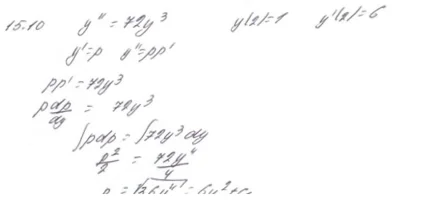 15.10 y'' = 72y³ y(2)=1 y'(2)=6
y'=p y''=pp'
pp'=72y³
p dp/dy = 72y³
∫pdp = ∫72y³dy
p²/2 = 72y⁴/4
p = √36y⁴ = 6y²+c₁